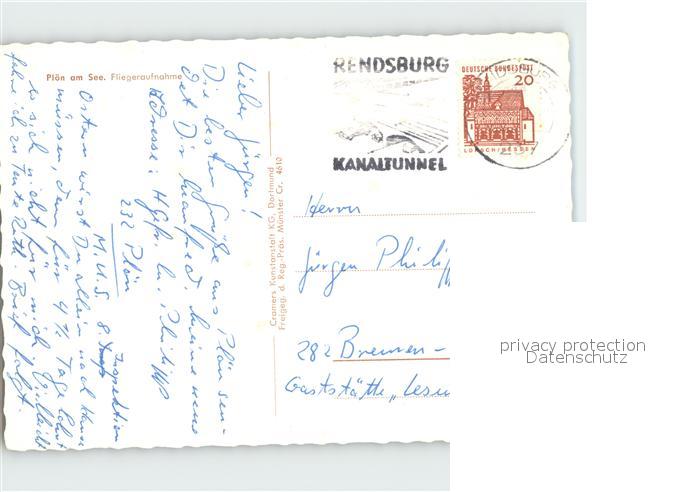 Plön am See. Fliegeraufnahme
Lieber Jürgen!
Die besten Grüße aus Plön sen-
det Dir Manfred. Meine neue
Adresse: H Gefr. M. Philipp
232 Plön
M.U.S 8. Inspektion
Ostern wirst Du allein nach Hause
müssen, denn für 4 ½ Tage lohnt
es sich nicht für mich. Vielleicht
fahre ich zu Tante Ruth. Brief folgt.
Cramers Kunstanstalt KG, Dortmund
Freigeg. d. Reg.-Präs. Münster Cr. 4610
RENDSBURG
KANALTUNNEL
DEUTSCHE BUNDESPOST
20
LORSCH/HESSEN
Herrn
Jürgen Philipp
282 Bremen-
Gaststätte „Lesu
privacy protection
Datenschutz